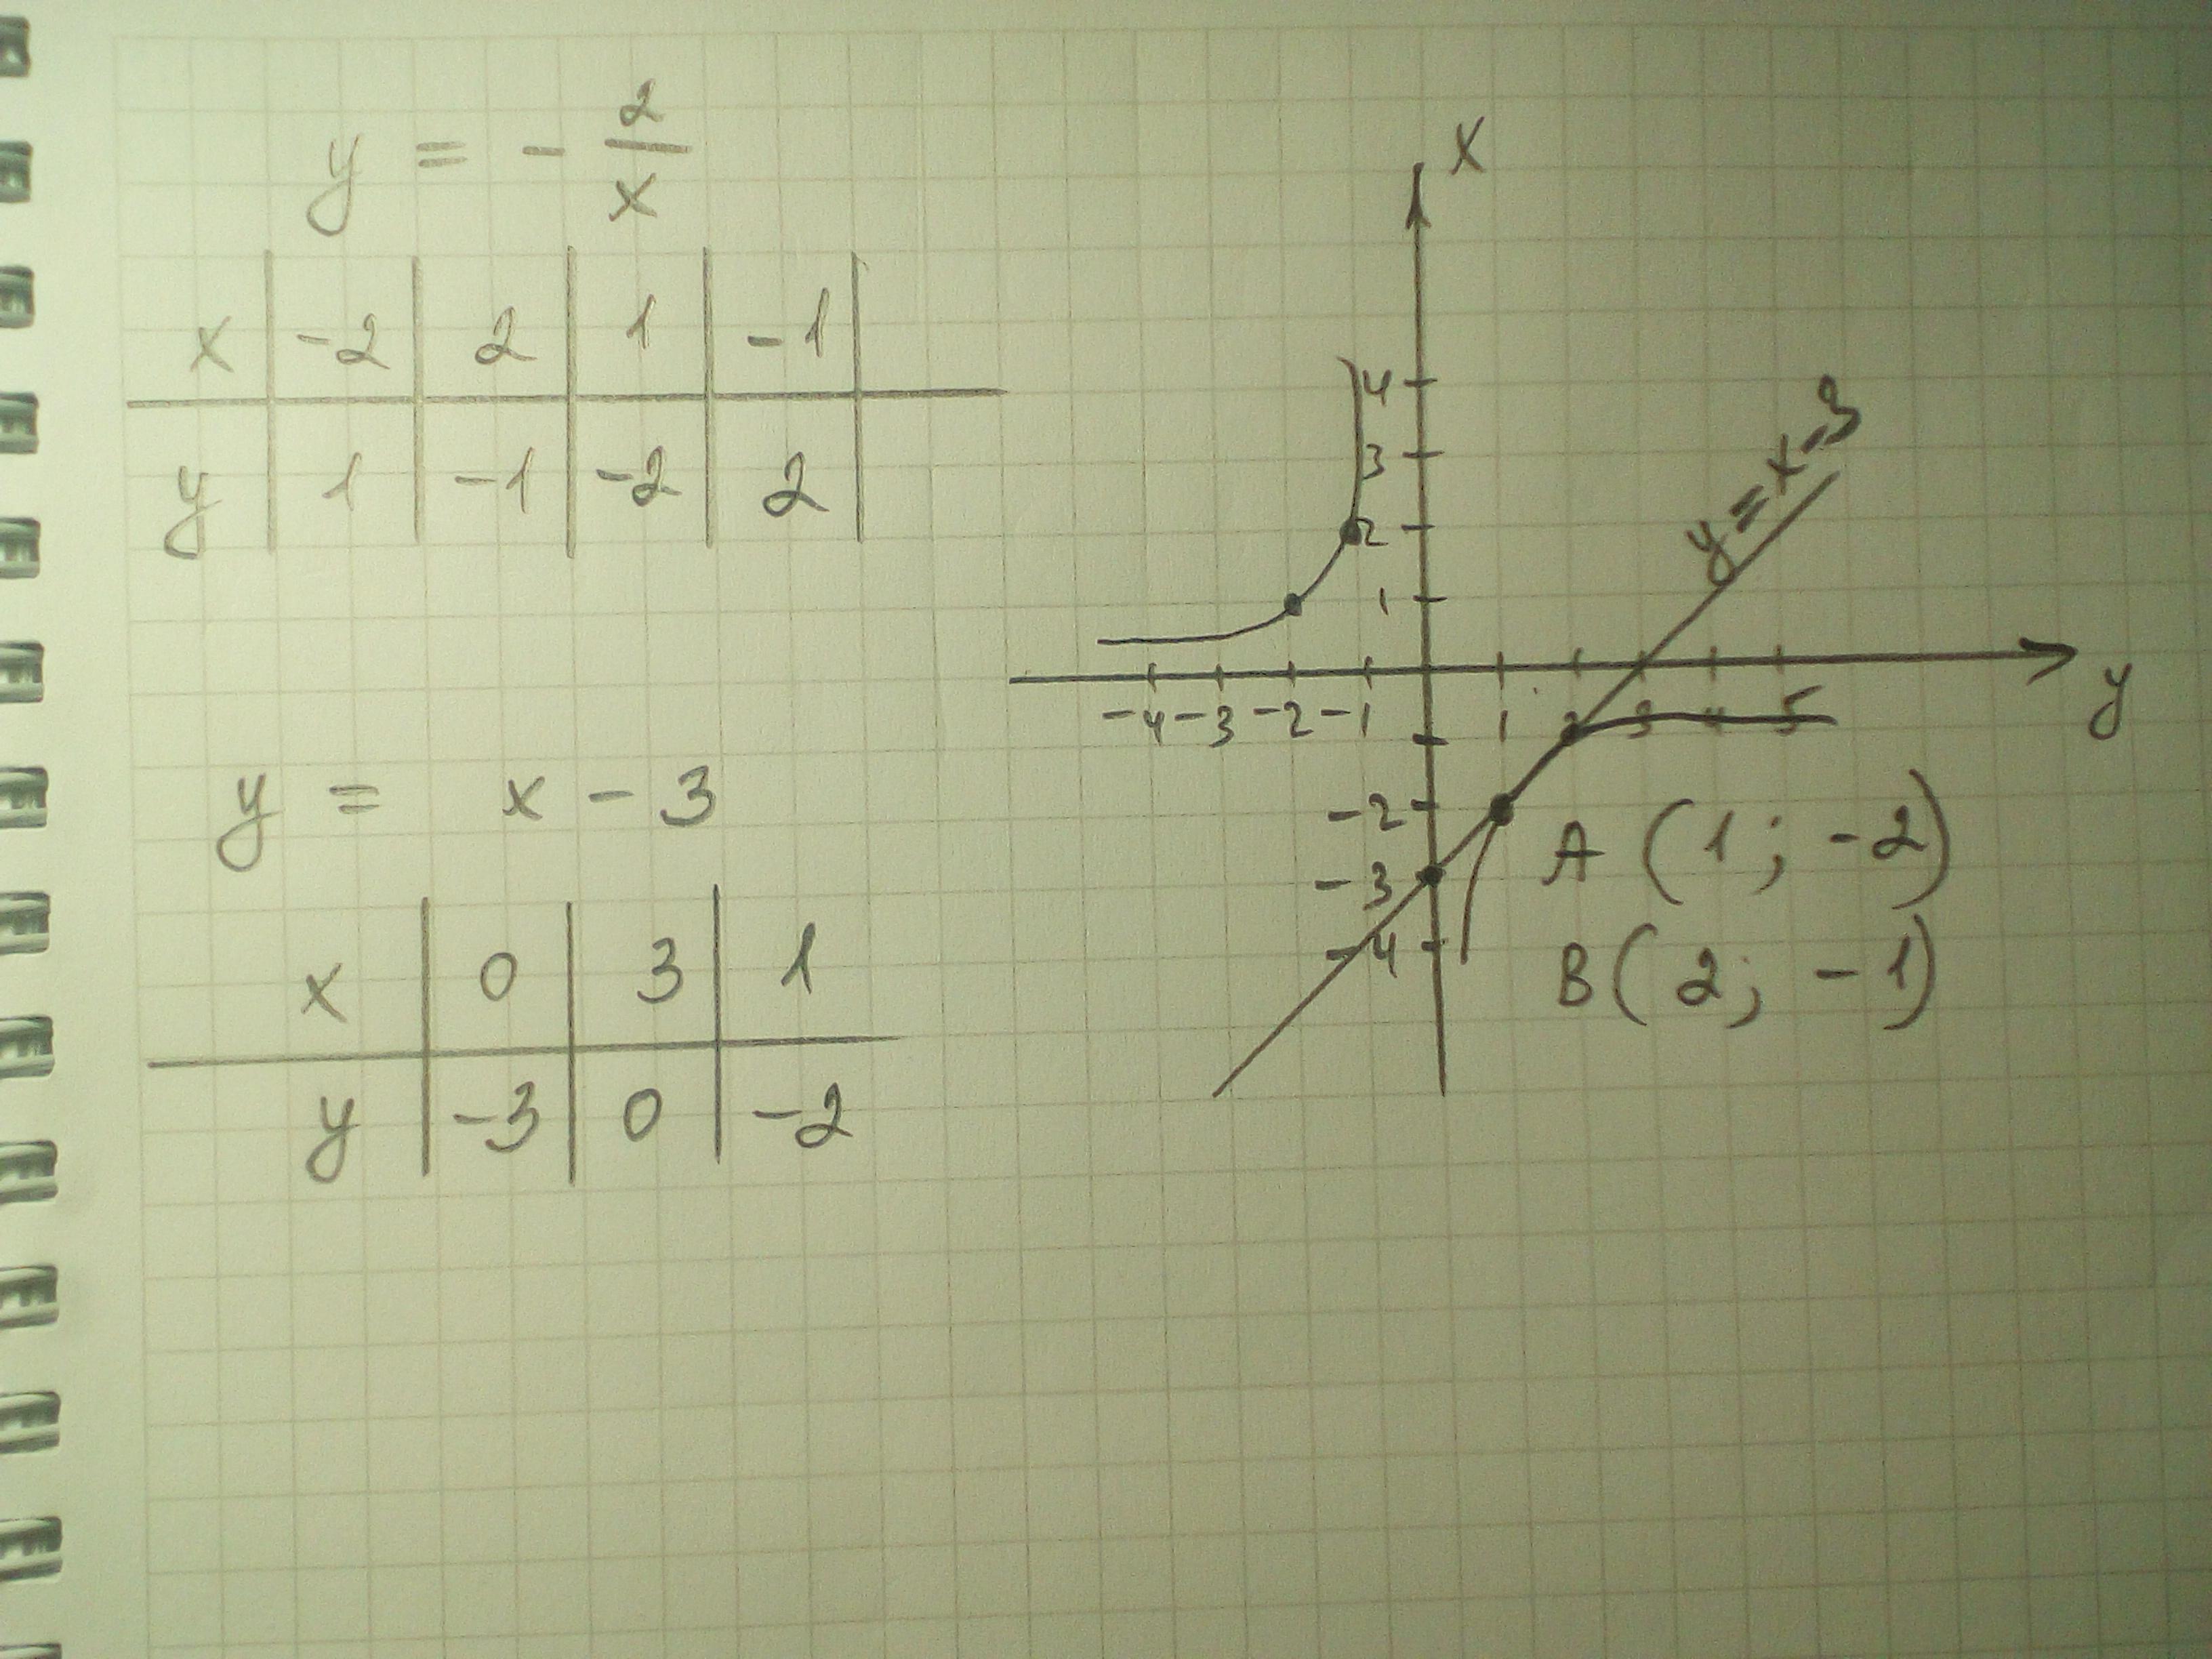 y = - 2/x
x | -2 | 2 | 1 | -1
y | 1 | -1 | -2 | 2
y = x - 3
x | 0 | 3 | 1
y | -3 | 0 | -2
x
4
3
2
1
-4 -3 -2 -1 1 2 3 4 5
y
-2
-3
-4
y = x - 3
A (1; -2)
B (2; -1)